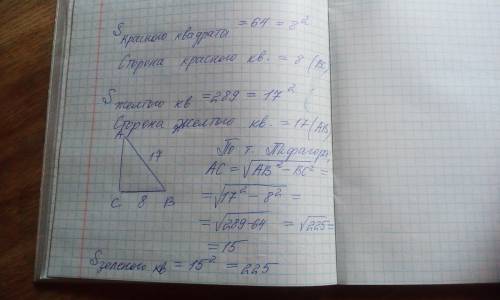 S красного квадрата = 64 = 8²
Сторона красного кв. = 8 (ВС)
S желтого кв = 289 = 17²
Сторона желтого кв. = 17 (АВ)
A
17
C 8 B
По т. Пифагора,
AC = √AB² - BC² =
= √17² - 8² =
= √289-64 = √225 =
= 15
S зеленого кв = 15² = 225